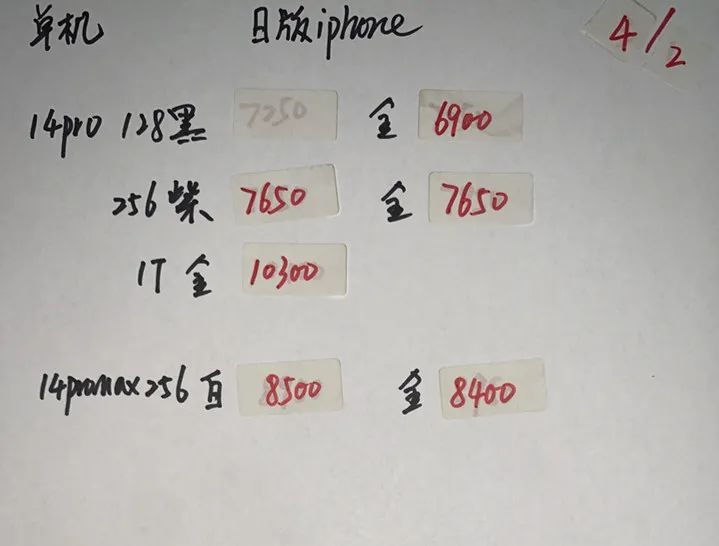 单机 日版iphone 4/2
14pro 128黑 7250 全 6900
256柴 7650 全 7650
1T 全 10300
14promax256 白 8500 全 8400